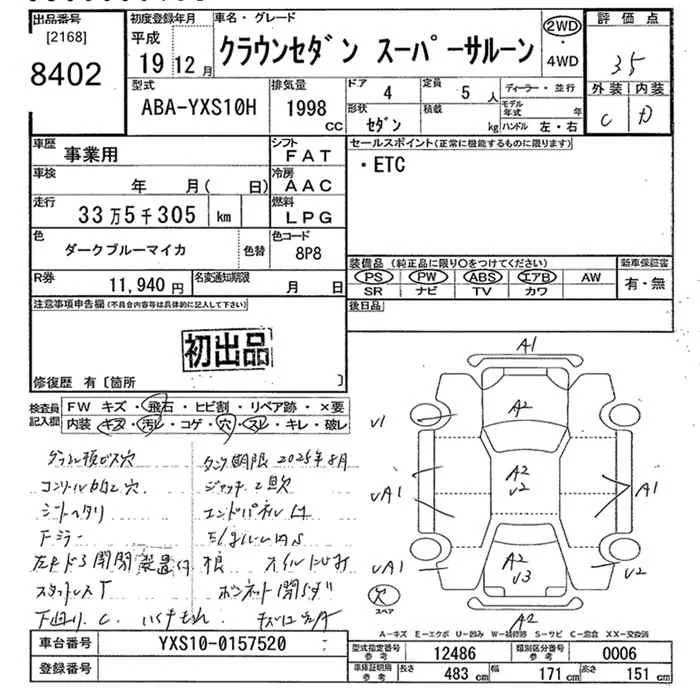 出品番号
[2168]
8402
初度登録年月
平成
19 12月
車名・グレード
クラウンセダン スーパーサルーン
2WD
・
4WD
評価点
35
外装 内装
C D
型式
ABA-YXS10H
排気量
1998
CC
ドア
4
形状
セダン
定員
5 人
積載
kg
ディーラー・並行
モデル年式 年
ハンドル 左・右
車歴
事業用
シフト
FAT
車検
年 月( 日)
冷房
AAC
走行
33万5千305 km
燃料
LPG
色
ダークブルーマイカ
色替
色コード
8P8
R券
11,940 円
名変通知期限
月 日
セールスポイント(正常に機能するものに限ります)
・ETC
装備品 (純正品に限り○をつけてください)
PS PW ABS エアB AW
SR ナビ TV カワ
新車保証書
有・無
後日品
注意事項申告欄(不具合内容等は具体的に記入して下さい)
初出品
修復歴 有〔箇所 〕
検査員記入欄
FW キズ・飛石・ヒビ割・リペア跡・×要
内装 キズ・汚レ・コゲ・穴・スレ・キレ・破レ
タンク期限 2025年8月
ジャッキ工具欠
シートヘタリ
Fミラー
左Rドア開閉装置付
スタッドレスT
ボンネット開らず
下回り C
A1
A2
V1
A2
V2
UA1
A1
UA1
A2
V3
V2
A2
穴
スペア
A-キズ E-エクボ U-凹み W-補修跡 S-サビ C-腐食 XX-交換済
車台番号
YXS10-0157520
登録番号
型式指定番号 参考
12486
類別区分番号 参考
0006
車庫証明用 参考
長さ 483 cm 幅 171 cm 高さ 151 cm